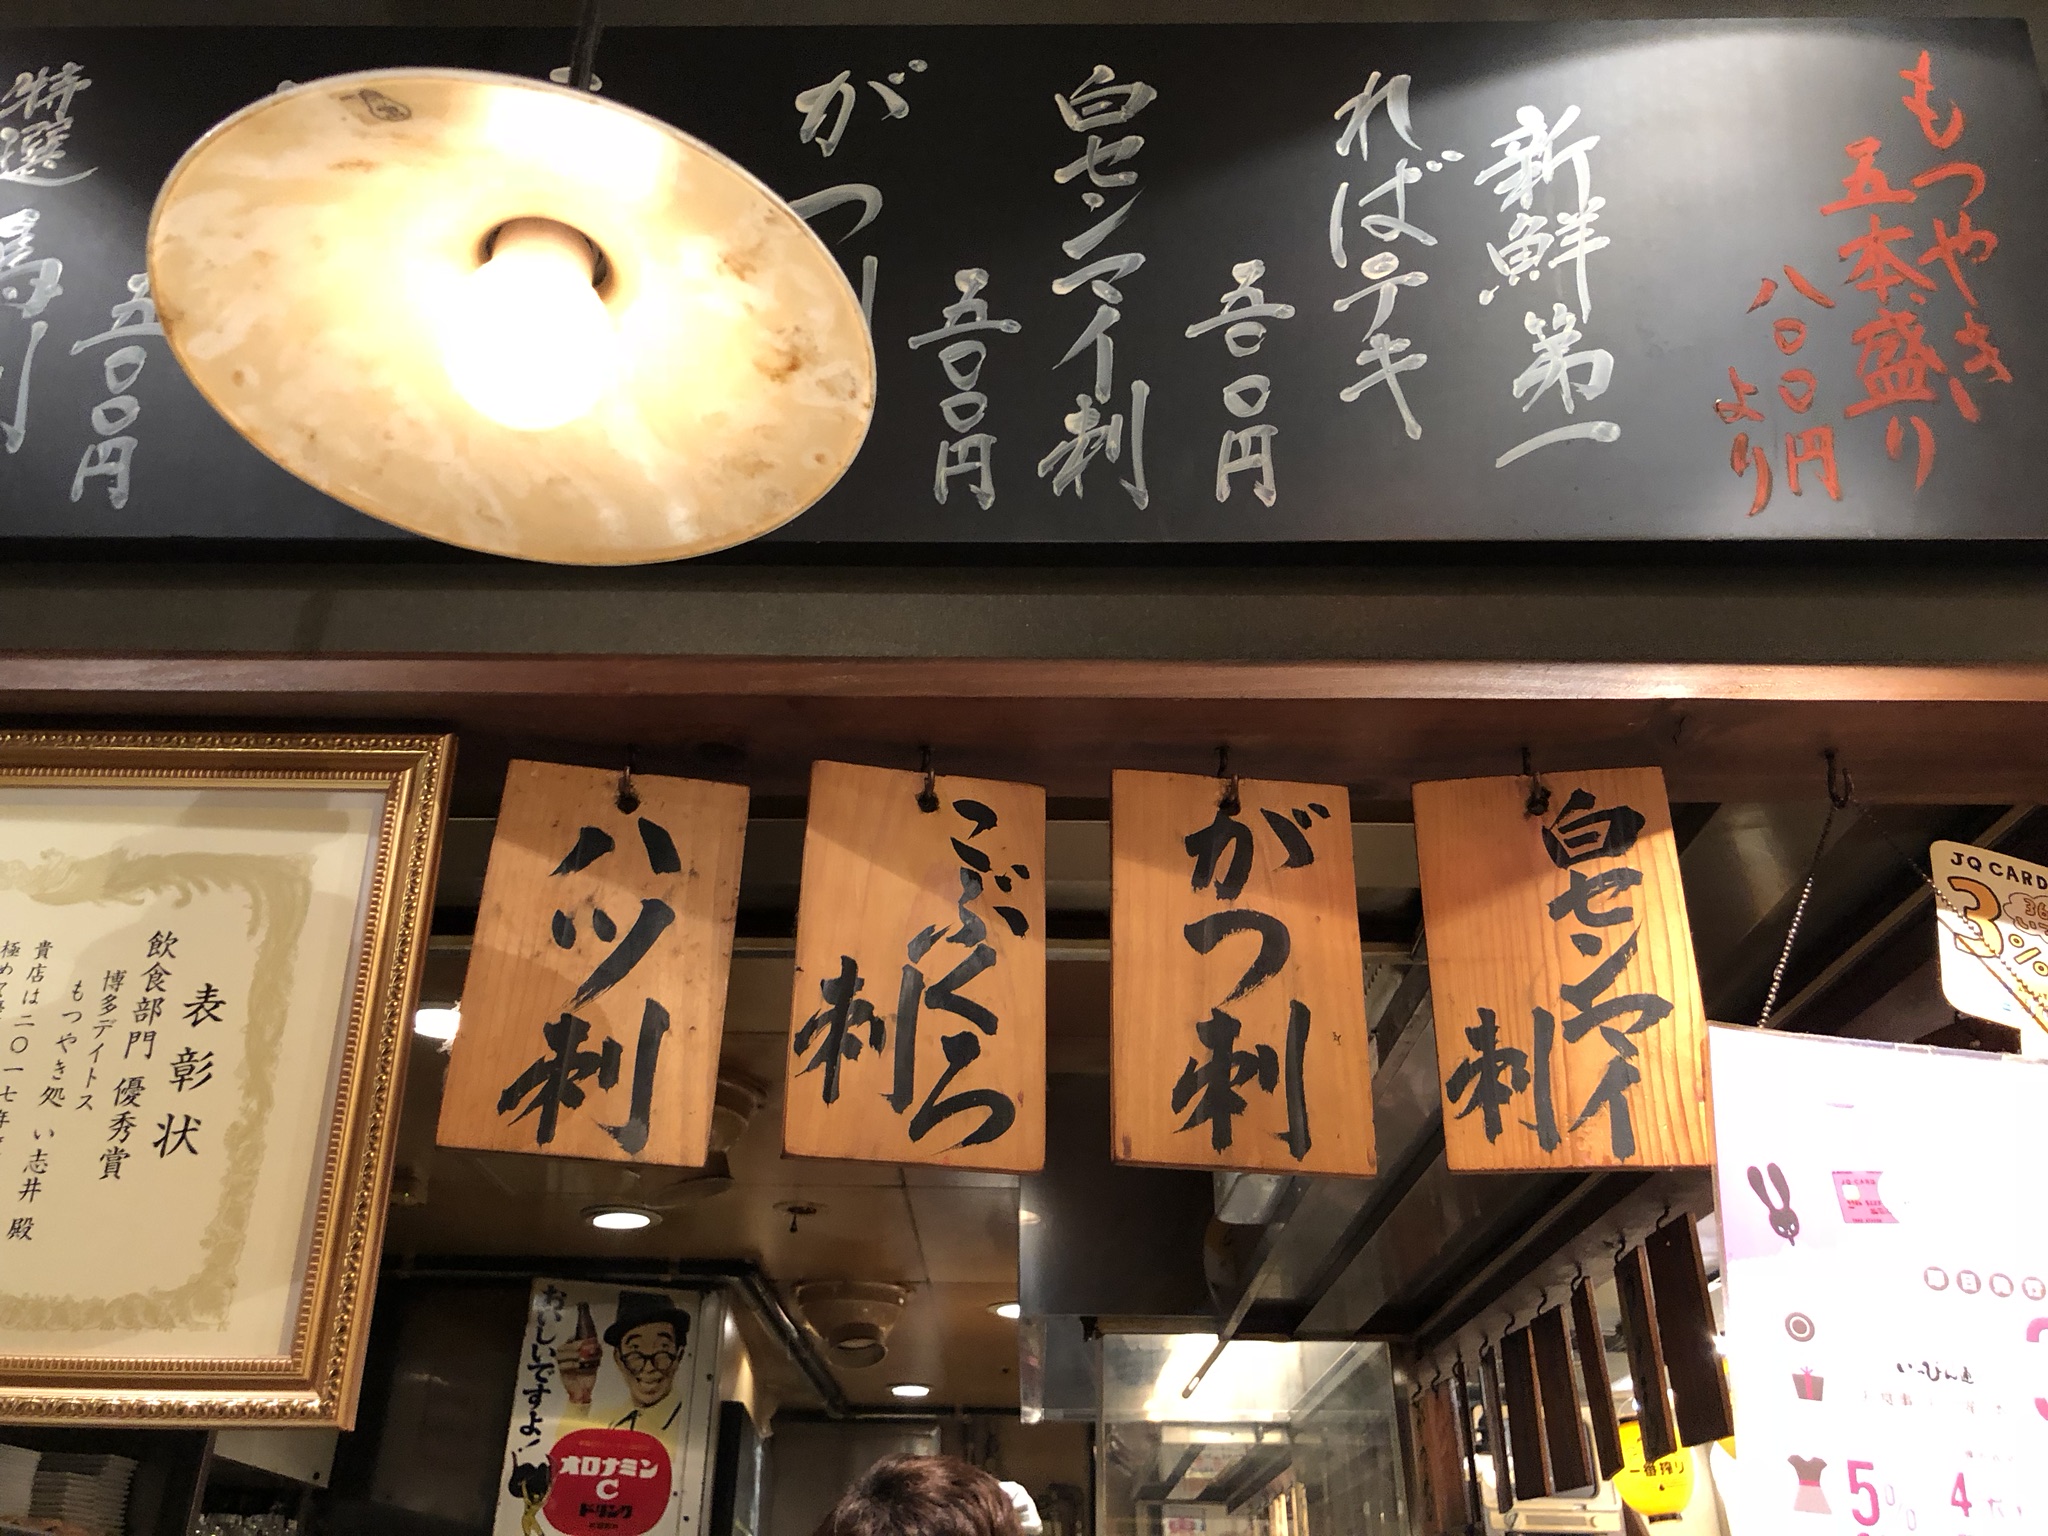 もつやき
五本盛り
八〇〇円
より
新鮮第一
ればテキ
五〇〇円
白センマイ刺
五〇〇円
がつ刺
五〇〇円
特選
馬刺
白センマイ
刺
がつ刺
こぶくろ
刺
ハツ刺
表彰状
飲食部門 優秀賞
博多デイトス
もつやき処 い志井 殿
貴店は二〇一七年
極め
おいしいですよ!
オロナミン
C
ドリンク
JQ CARD
3%
36
いっぴん通
5%
4
一番搾り